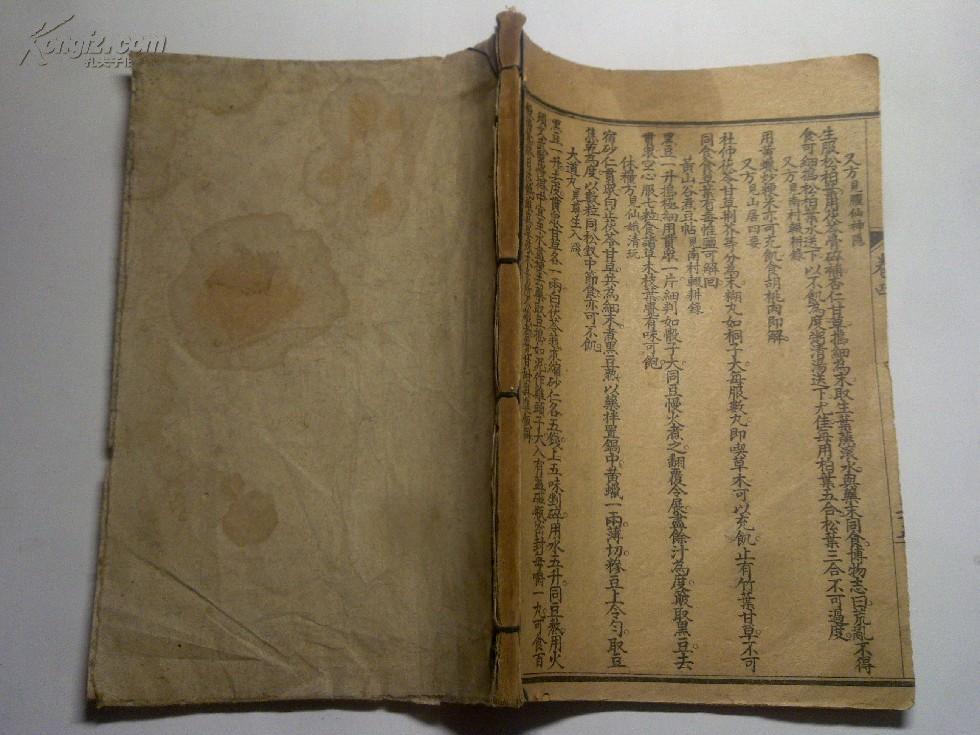 Kongfz.com
又方見臞仙神隱
生服松柏葉用茯苓骨碎補杏仁甘草搗細為末取生葉蘸滾水與藥末同食博物志曰荒亂不得
食可細搗松柏葉水送下以不飢為度粥清湯送下尤佳每用柏葉五合松葉三合不可過度
又方見南村輟耕錄
用黃蠟炒粳米亦可充飢食胡桃肉即解
又方見山居四要
杜仲茯苓甘草荊芥等分為末糊丸如桐子大每服數丸即喫草木可以充飢止有竹葉甘草不可
同食食草葉有毒惟鹽可解回
黃山谷煮豆帖見南村輟耕錄
黑豆一升搗極細用貫眾一片細判如骰子大同豆慢火煮之翻覆令展盡餘汁為度嚴取黑豆去
貫眾空心服七粒食諸草木枝葉覺有味可飽
休糧方見仙娥清玩
宿砂仁貫眾白茯苓甘草共為細末煮黑豆熟以藥拌置鍋中黃蠟一兩薄切糝豆上令勻取豆
焦乾為度以數粒同松釵中節食亦可不飢
大道丸見尊生入牋
黑豆一升去皮貫眾甘草各一兩白茯苓蒼朮縮砂仁各五錢上五味剉碎用水五升同豆熬用火
藥取豆搗如泥作雞頭子大入有蓋磁瓶密封每嚼一丸可食百